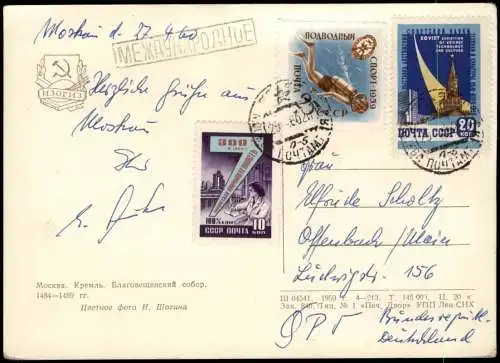 Moskau d. 27.4.60
МЕЖДУНАРОДНОЕ
ИЗОГИЗ
Herzliche Grüße aus
Moskau
Ihr
ПОДВОДНЫЙ
СПОРТ 1959
ПОЧТА
SOVIET EXHIBITION
OF SCIENCE
TECHNOLOGY
AND CULTURE
ПОЧТА СССР 20 КОП
300
СССР ПОЧТА 10 КОП
Frau
Elfriede Scholtz
Offenbach/Main
Ludwigstr. 156
Bundesrepublik
Deutschland
Москва. Кремль. Благовещенский собор.
1484—1489 гг.
Цветное фото И. Шагина
Ш 04541. 1959 4—213. Т. 145 001. Ц. 20 к.
Тип. № 1 «Печ. Двор» УПП Лен СНХ